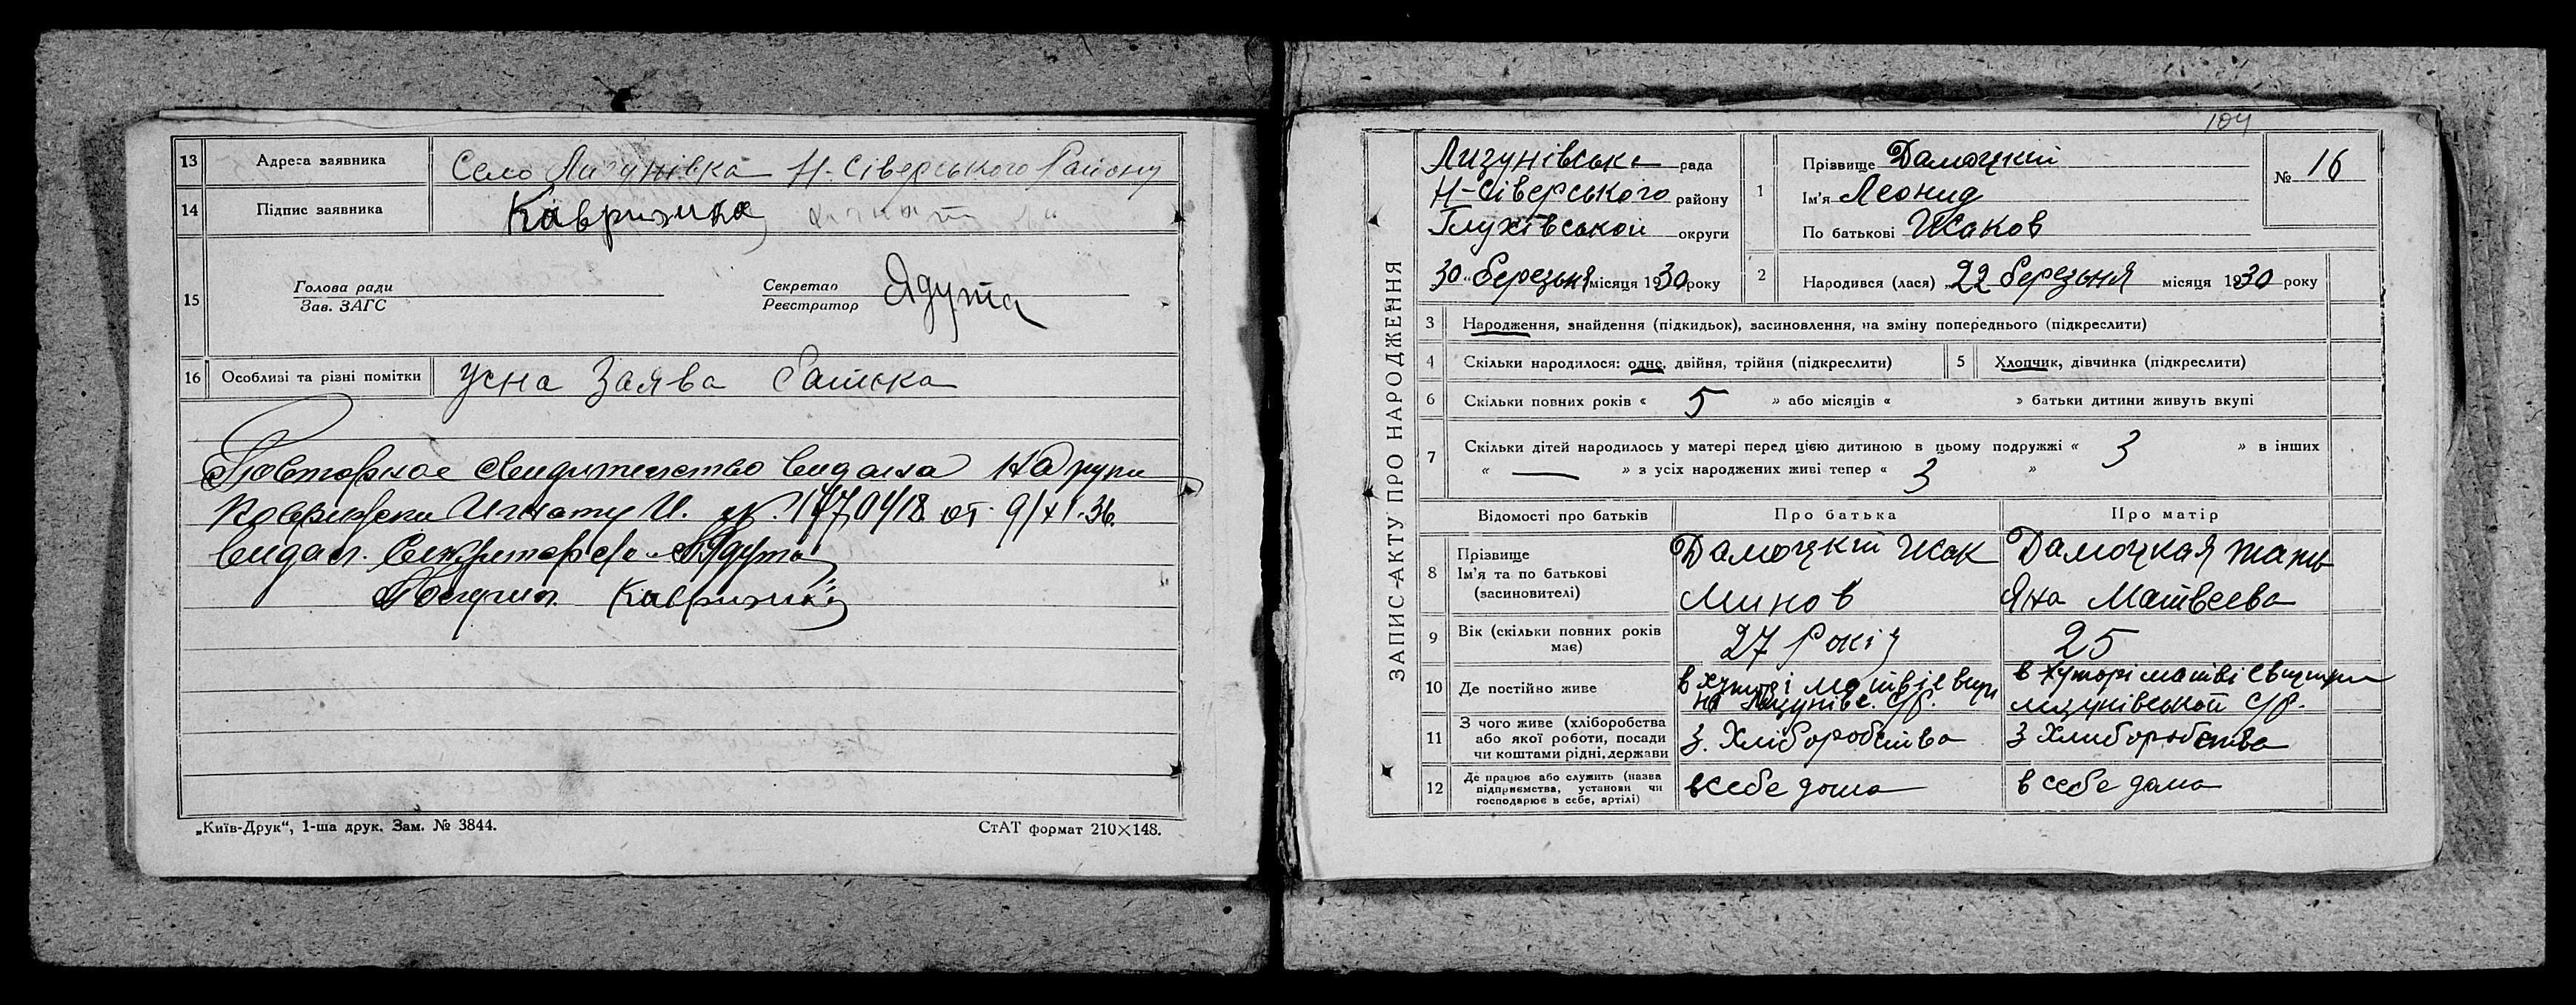 13 Адреса заявника Село Лизунівка Н-Сіверського Району
14 Підпис заявника Каврижка
15 Голова ради
Зав. ЗАГС
Секретар
Реєстратор Ядута
16 Особливі та різні помітки Усна Заява Батька
Повторное свидительство видана на руки
Игнату И. от 9/XI-36.
видал. Секритарь Ядута
Получил
„Київ-Друк“, 1-ша друк. Зам. № 3844.
СтАТ формат 210×148.
104
ЗАПИС-АКТУ ПРО НАРОДЖЕННЯ
Лизунівська рада
Н-Сіверського району
Глухівськой округи
30 „ березня місяця 1930 року
1 Прізвище Дамоцкій
Ім'я Леонид
По батькові Исаков
№ 16
2 Народився (лася) „22 березня місяця 1930 року
3 Народження, знайдення (підкидьок), засиновлення, на зміну попереднього (підкреслити)
4 Скільки народилося: одне, двійня, трійня (підкреслити) 5 Хлопчик, дівчинка (підкреслити)
6 Скільки повних років « 5 » або місяців « » батьки дитини живуть вкупі
7 Скільки дітей народилось у матері перед цією дитиною в цьому подружжі « 3 » в інших
« — » з усіх народжених живі тепер « 3 »
Відомості про батьків Про батька Про матір
8 Прізвище
Ім'я та по батькові
(засиновителі)
Дамоцкій Исак
Минов
Дамоцкая Тать
яна Матвеева
9 Вік (скільки повних років має) 27 Років 25
10 Де постійно живе
в хуторі
Лизунівс. С/р.
в хуторі
лизунівськой С/р.
11 З чого живе (хліборобства або якої роботи, посади чи коштами рідні, держави З. Хліборобства З Хлиборобства
12 Де працює або служить (назва підприємства, установи чи господарює в себе, артілі) в себе дома в себе дома